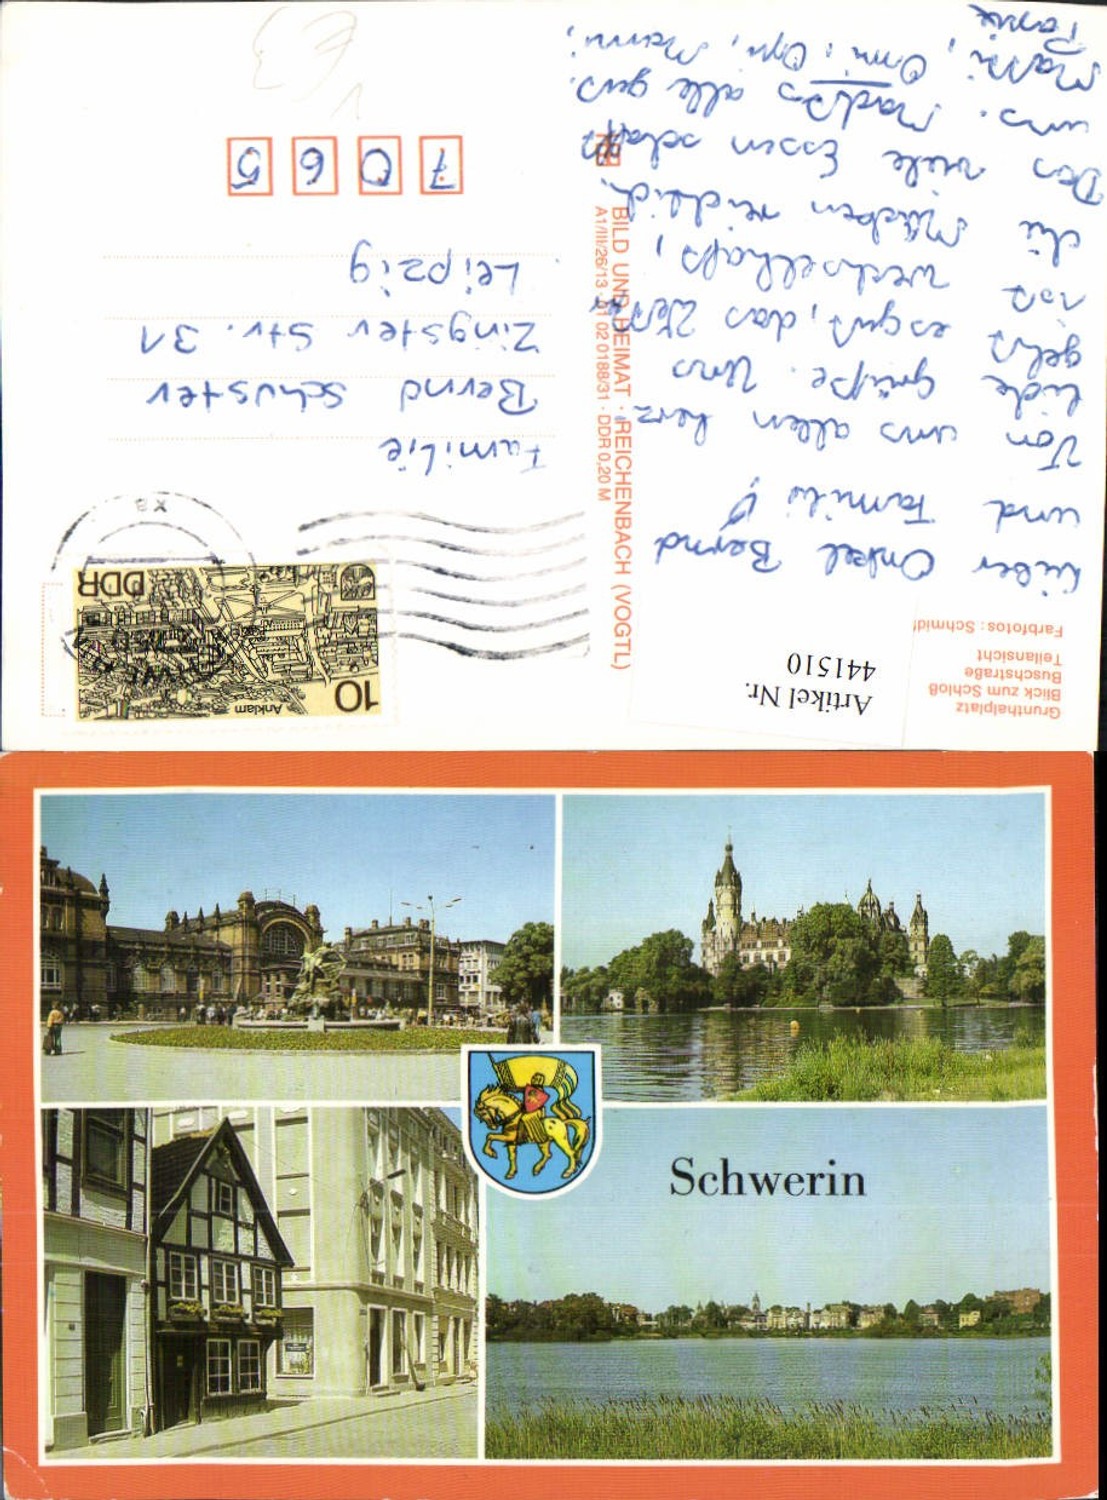 Grunthalplatz
Blick zum Schloß
Buschstraße
Teilansicht
Farbfotos: Schmidt
Artikel Nr.
441510
Lieber Onkel Bernd
und Familie!
Von uns allen herz
liche Grüße. Uns
geht es gut, das Wetter
ist wechselhaft,
die Mücken reichlich.
Das viele Essen schafft
uns. Macht's alle gut.
Omi, Opi, Mami,
BILD UND HEIMAT · REICHENBACH (VOGTL)
A1/III/26/13 · 01 02 0188/31 · DDR 0,20 M
10
Anklam
DDR
Familie
Bernd Schuster
Zingster Str. 31
Leipzig
7065
Schwerin